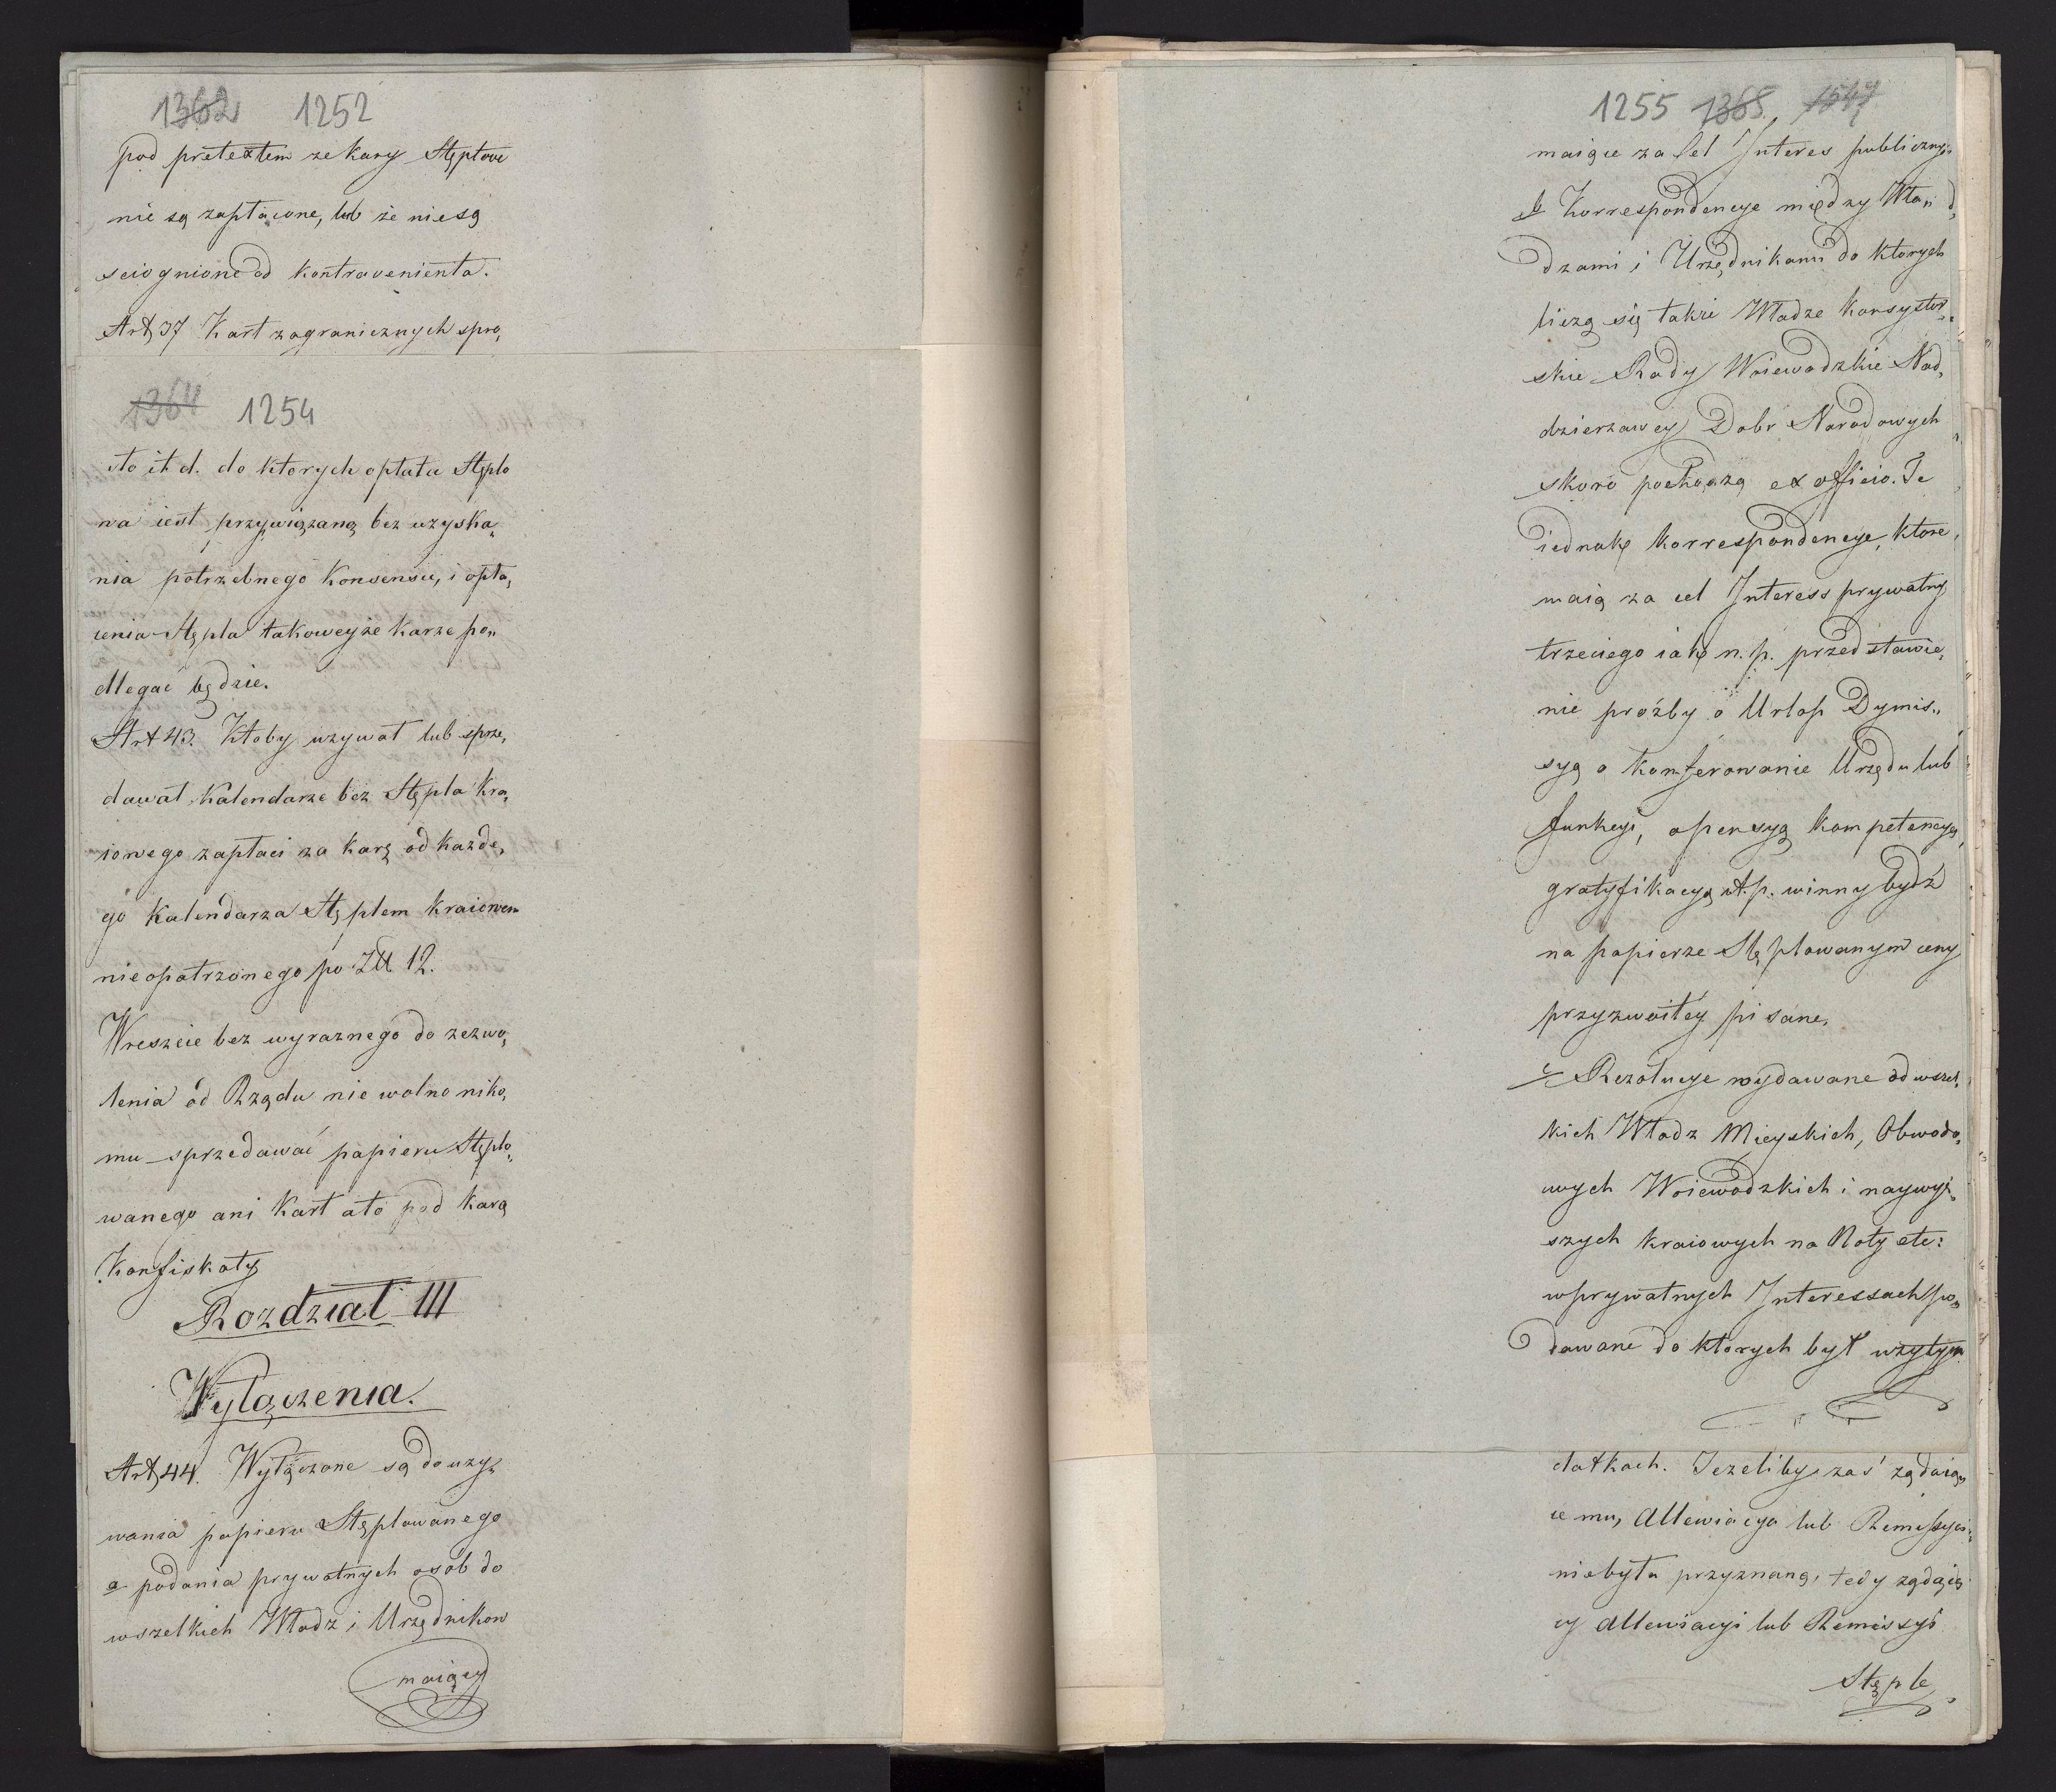 1362 1252
pod pretextem ze kary Stęplowe
nie są zapłacone, lub że niesą
sciognione od kontravenienta.
Art 37 Kart zagranicznych spro,
1364 1254
sto it d. do ktorych opłata Stęplo
wa iest przywiązaną bez uzyska„
nia potrzebnego Konsensu, i opła,
cenia Stępla takoweyże karze po„
dlegać będzie.
Art 43. Ktoby uzywał lub sprze,
dawał Kalendarze bez Stępla kra,
iowego zapłaci za karę od kazde,
go Kalendarza Stęplem kraiowem
nieopatrzonego po Złł 12.
Wreszcie bez wyraznego do zezwo,
lenia od Rządu nie wolno niko,
mu sprzedawać papieru Stęplo,
wanego ani Kart ato pod karą
Konfiskaty
Rozdział III
Wyłączenia.
Art 44. Wyłączone są do uzy,
wania papieru Stęplowanego
a podania prywatnych osób do
wszelkich Władz i Urzędnikow
maiący
1255 1365. 1547
maiące za cel Interes publiczny.
b Korrespondencye między Wła„
dzami i Urzędnikami do ktorych
liczą się takze Władze konsystor„
skie Rady Woiewodzkie Nad,
dzierzawcy Dobr Narodowych
skoro pochodzą ex officio. Te
iednakz korrespondencye, ktore
maią za cel Interess prywatny
trzeciego iako n. p. przedstawie,
nie prożby o Urlop Dymis„
syą o konferowanie Urzędu lub
funkcyi, o pensyą kompetencyą,
gratyfikacyą i t. p. winny bydź
na papierze Stęplowanym ceny
przyzwoitéy pisane.
c Rezolucye wydawane od wszel,
kich Władz Mieyskich, Obwodo,
wych Woiewodzkich i naywyż„
szych kraiowych na Noty etc:
w prywatnych Interessach po„
dawane do ktorych był uzytym
datkach. Jezeliby zas' ządaią„
cemu, Allewiacya lub Remissya
niebyła przyznaną, tedy ządaią
cy Allewiacyi lub Remissyi
Stęple